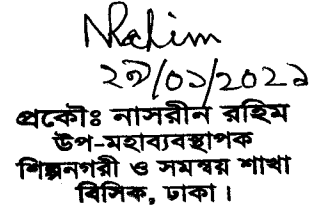 NRahim
২৭/০১/২০২১
প্রকৌঃ নাসরীন রহিম
উপ-মহাব্যবস্থাপক
শিল্পনগরী ও সমন্বয় শাখা
বিসিক, ঢাকা।